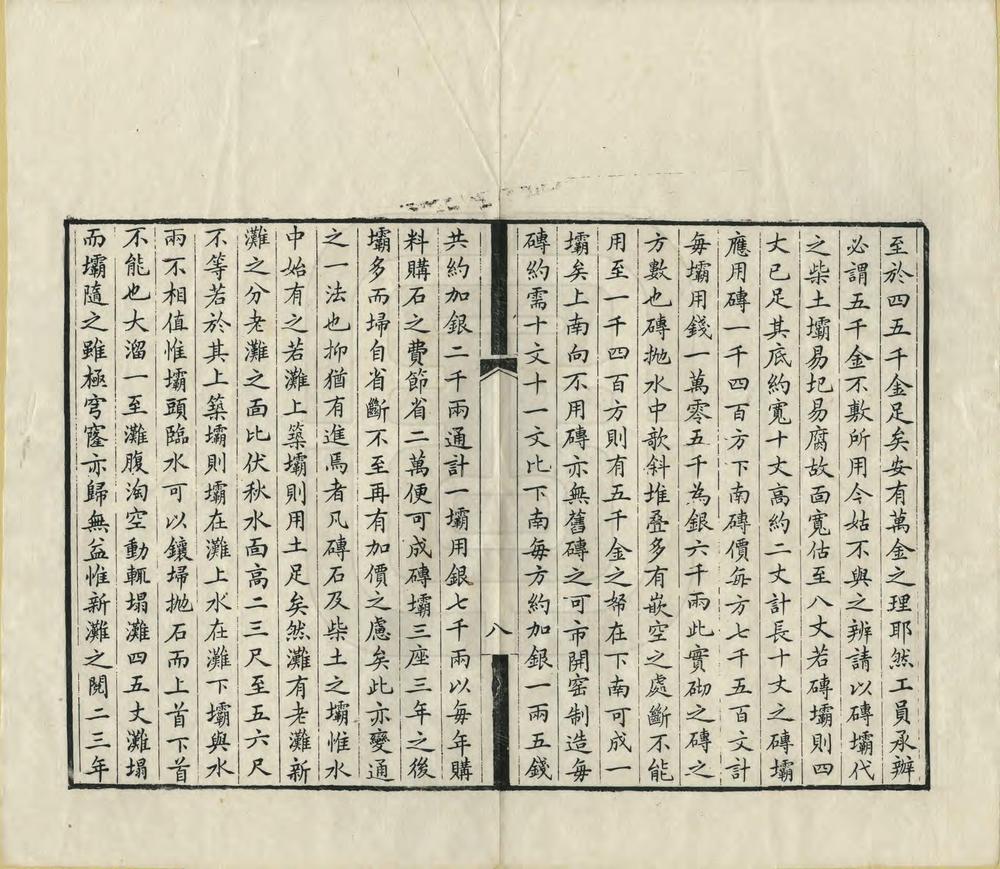 至於四五千金足矣安有萬金之理耶然工員承辦
必謂五千金不敷所用今姑不與之辨請以磚壩代
之柴土壩易圮易腐故面寬估至八丈若磚壩則四
丈已足其底約寬十丈高約二丈計長十丈之磚壩
應用磚一千四百方下南磚價每方七千五百文計
每壩用錢一萬零五千為銀六千兩此實砌之磚之
方數也磚拋水中欹斜堆疊多有嵌空之處斷不能
用至一千四百方則有五千金之帑在下南可成一
壩矣上南向不用磚亦無舊磚之可市開窑制造每
磚約需十文十一文比下南每方約加銀一兩五錢
八
共約加銀二千兩通計一壩用銀七千兩以每年購
料購石之費節省二萬便可成磚壩三座三年之後
壩多而埽自省斷不至再有加價之慮矣此亦變通
之一法也抑猶有進焉者凡磚石及柴土之壩惟水
中始有之若灘上築壩則用土足矣然灘有老灘新
灘之分老灘之面比伏秋水面高二三尺至五六尺
不等若於其上築壩則壩在灘上水在灘下壩與水
兩不相值惟壩頭臨水可以鑲埽拋石而上首下首
不能也大溜一至灘腹淘空動輒塌灘四五丈灘塌
而壩隨之雖極穹窿亦歸無益惟新灘之閱二三年